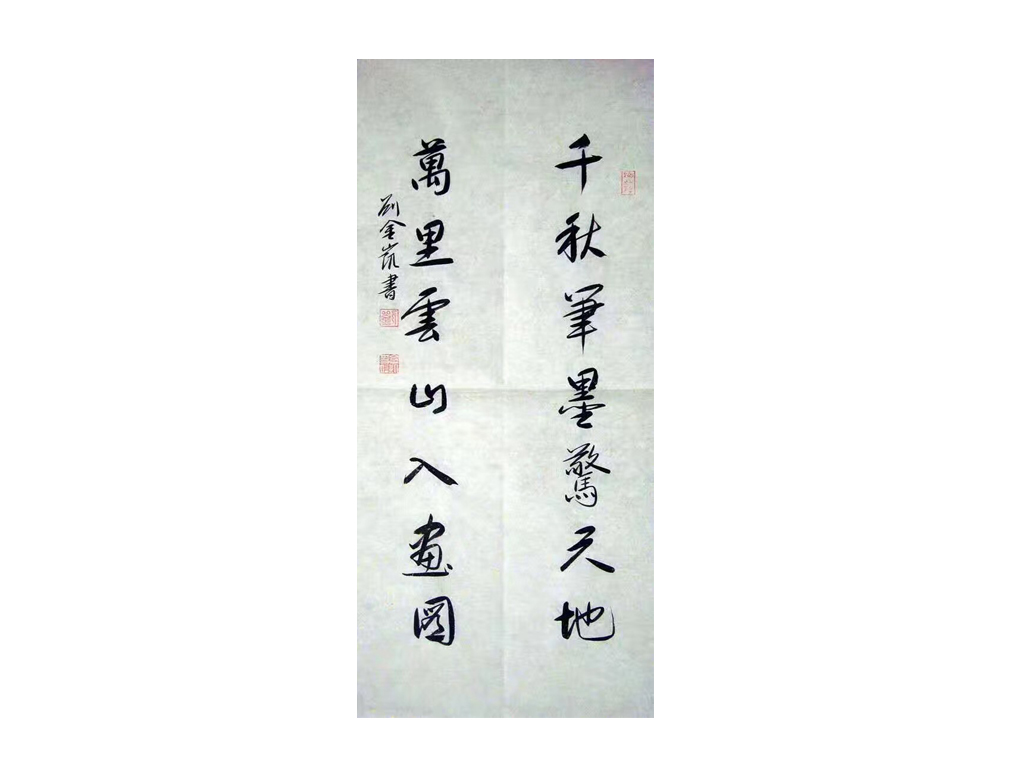 千秋筆墨驚天地
萬里雲山入畫圖
劉金凱書